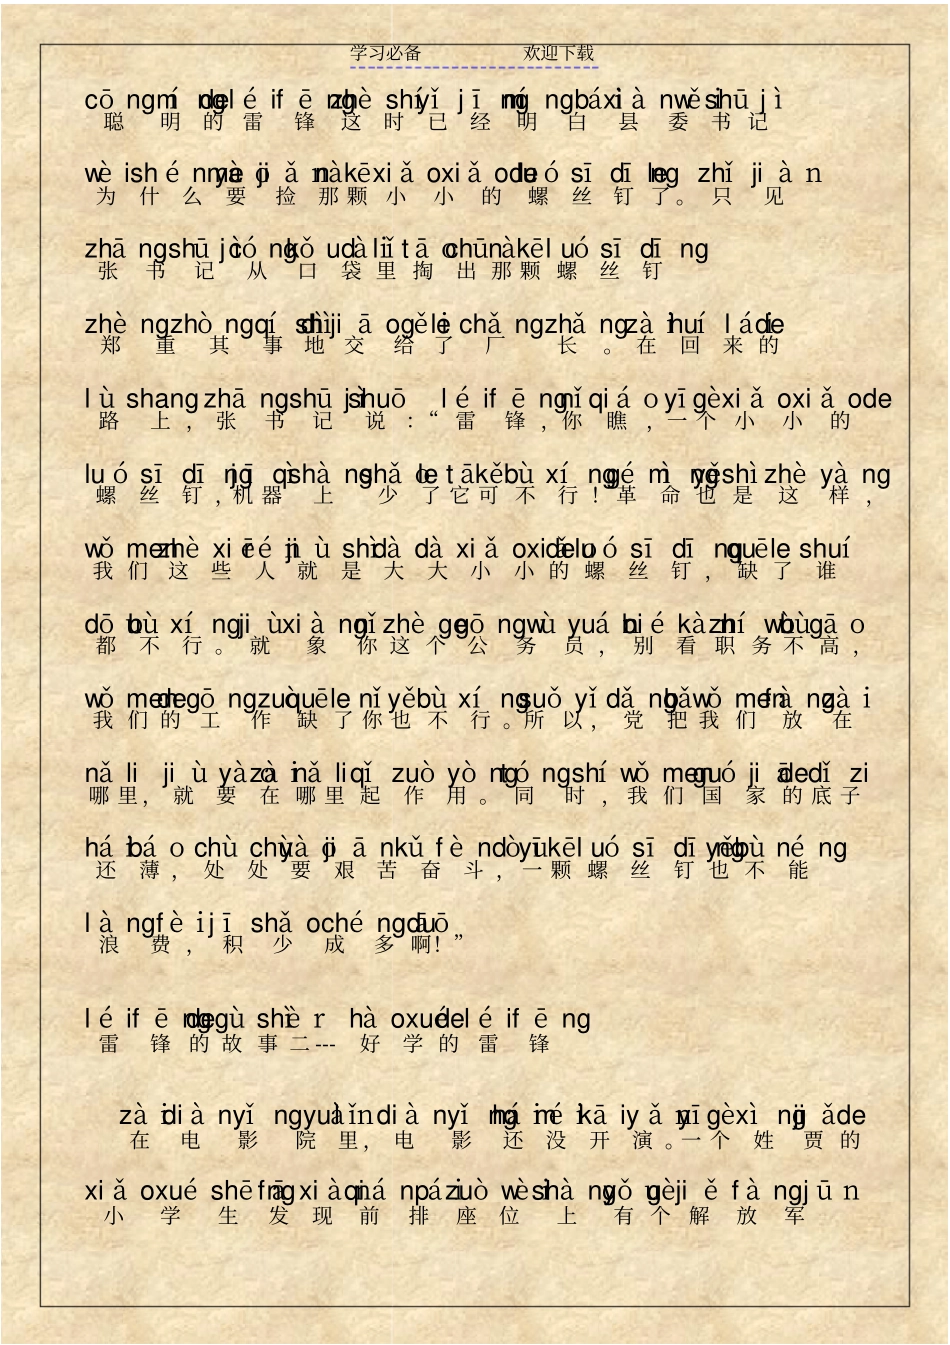 学习必备 欢迎下载
cōngmíngdeléifēngzhèshíyǐjīngmíngbáixiànwěishūjì
聪明的雷锋这时已经明白县委书记
wèishénmeyàojiǎnnàkēxiǎoxiǎodeluósīdīngle zhǐjiàn
为什么要捡那颗小小的螺丝钉了。只见
zhāngshūjìcóngkǒudàilǐtāochūnàkēluósīdīng
张书记从口袋里掏出那颗螺丝钉
zhèngzhòngqíshìdìjiāogěilechǎngzhǎngzàihuíláide
郑重其事地交给了厂长。在回来的
lùshangzhāngshūjìshuō léifēngnǐqiáoyīgèxiǎoxiǎode
路上,张书记说:“雷锋,你瞧,一个小小的
luósīdīngjīqìshàngshǎoletākěbùxínggémìngyěshìzhèyàng
螺丝钉,机器上少了它可不行!革命也是这样,
wǒmenzhèxiērénjiùshìdàdàxiǎoxiǎodeluósīdīngquēleshuí
我们这些人就是大大小小的螺丝钉,缺了谁
dōubùxíngjiùxiàngnǐzhègegōngwùyuánbiékànzhíwùbùgāo
都不行。就象你这个公务员,别看职务不高,
wǒmendegōngzuòquēlenǐyěbùxíngsuǒyǐdǎngbǎwǒmenfàngzài
我们的工作缺了你也不行。所以,党把我们放在
nǎlijiùyàozàinǎliqǐzuòyòngtóngshíwǒmenguójiādedǐzi
哪里,就要在哪里起作用。同时,我们国家的底子
háibáochùchùyàojiānkǔfèndòuyīkēluósīdīngyěbùnéng
还薄,处处要艰苦奋斗,一颗螺丝钉也不能
làngfèijīshǎochéngduōā
浪费,积少成多啊!”
léifēngdegùshìèr hàoxuédeléifēng
雷锋的故事二---好学的雷锋
zàidiànyǐngyuànlǐdiànyǐngháiméikāiyǎnyīgèxìngjiǎde
在电影院里,电影还没开演。一个姓贾的
xiǎoxuéshēngfāxiànqiánpáizuòwèishàngyǒugèjiěfàngjūn
小学生发现前排座位上有个解放军